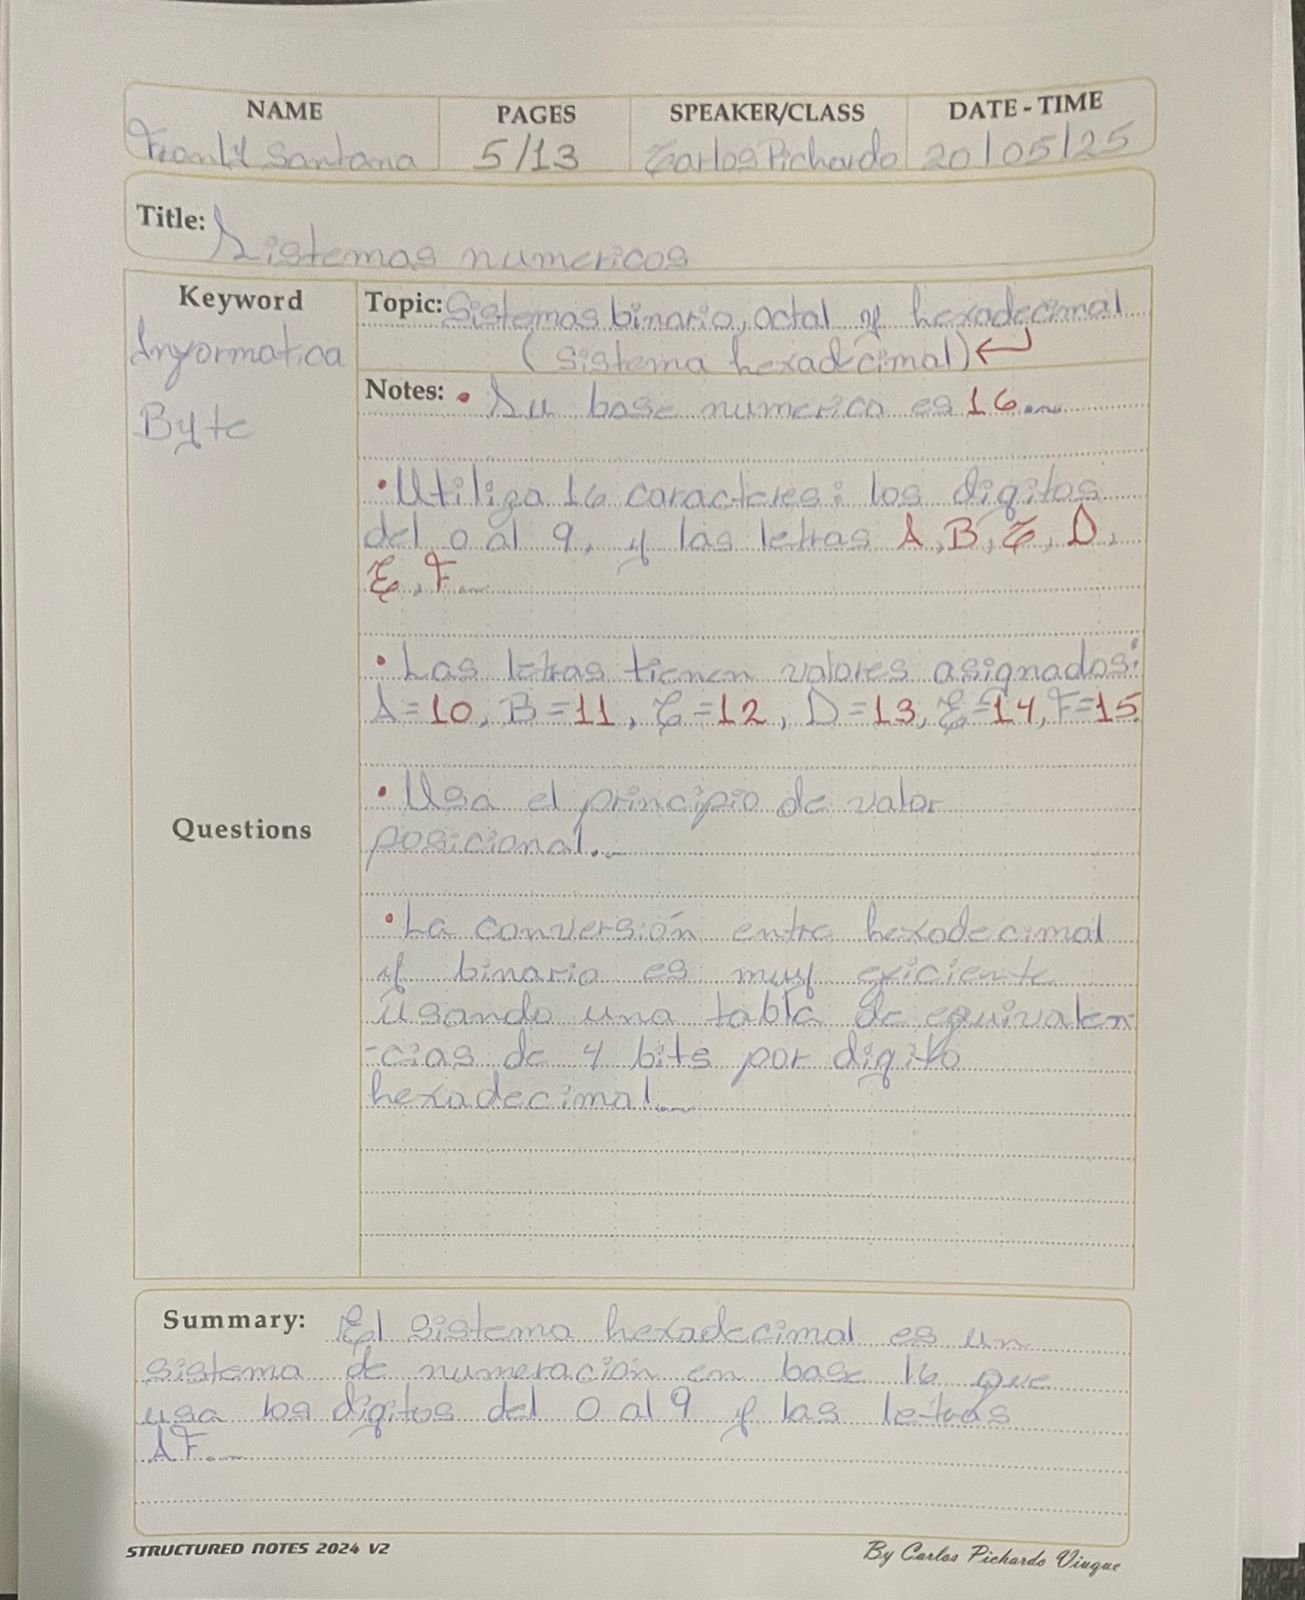 NAME PAGES SPEAKER/CLASS DATE - TIME
Santana 5/13 Carlos Pichardo 20/05/25
Title: Sistemas numericos
Keyword
Informatica
Byte
Topic: Sistemas binario, octal y hexadecimal
(sistema hexadecimal)
Notes: • Su base numerica es 16
• Utiliza 16 caracteres: los digitos
del 0 al 9, y las letras A, B, C, D,
E, F.
• Las letras tienen valores asignados:
A=10, B=11, C=12, D=13, E=14, F=15
• Usa el principio de valor
posicional.
Questions
• La conversión entre hexodecimal
y binario es muy eficiente
usando una tabla de equivalen
-cias de 4 bits por digito
hexadecimal.
Summary: El sistema hexadecimal es un
sistema de numeración en base 16 que
usa los digitos del 0 al 9 y las letras
AF.
STRUCTURED NOTES 2024 V2
By Carlos Pichardo Viuque